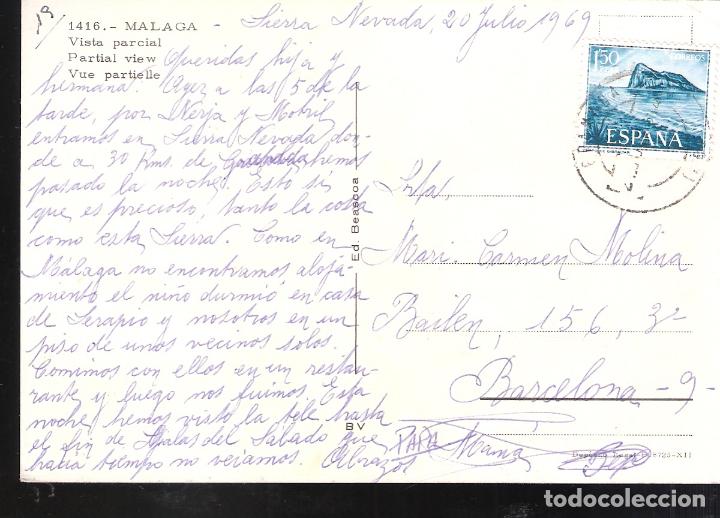 19
1416.- MALAGA - Sierra Nevada, 20 Julio 1969
Vista parcial
Partial view
Vue partielle
Queridas hija y
hermana. Ayer a las 5 de la
tarde, por Nerja y Motril
entramos en Sierra Nevada don-
de a 30 Kms. de Granada hemos
pasado la noche. Esto sí
que es precioso, tanto la costa
como esta Sierra. Como en
Málaga no encontramos aloja-
miento el niño durmió en casa
de Serapio y nosotros en un
piso de unos vecinos solos.
Comimos con ellos en un restau-
rante y luego nos fuimos. Esta
noche hemos visto la tele hasta
el fin de Galas del Sábado que
hacía tiempo no veíamos. Abrazos
PAPA Mamá Pepe
Ed. Beascoa
BV
1,50 CORREOS
ESPAÑA
Srta.
Mari-Carmen Molina
Bailen, 156, 3º
Barcelona -9-
Depósito Legal B. 8725-XII
todocoleccion.net